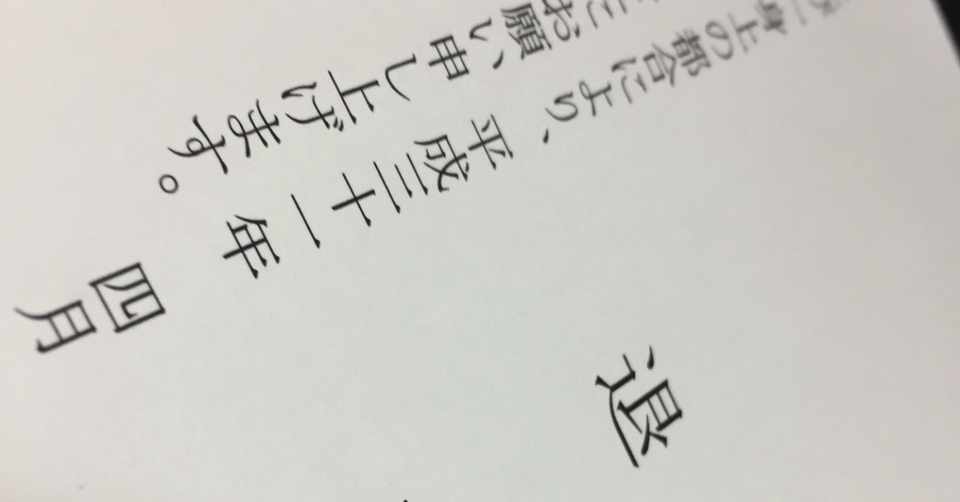 退
一身上の都合により、平成三十一年四月
お願い申し上げます。